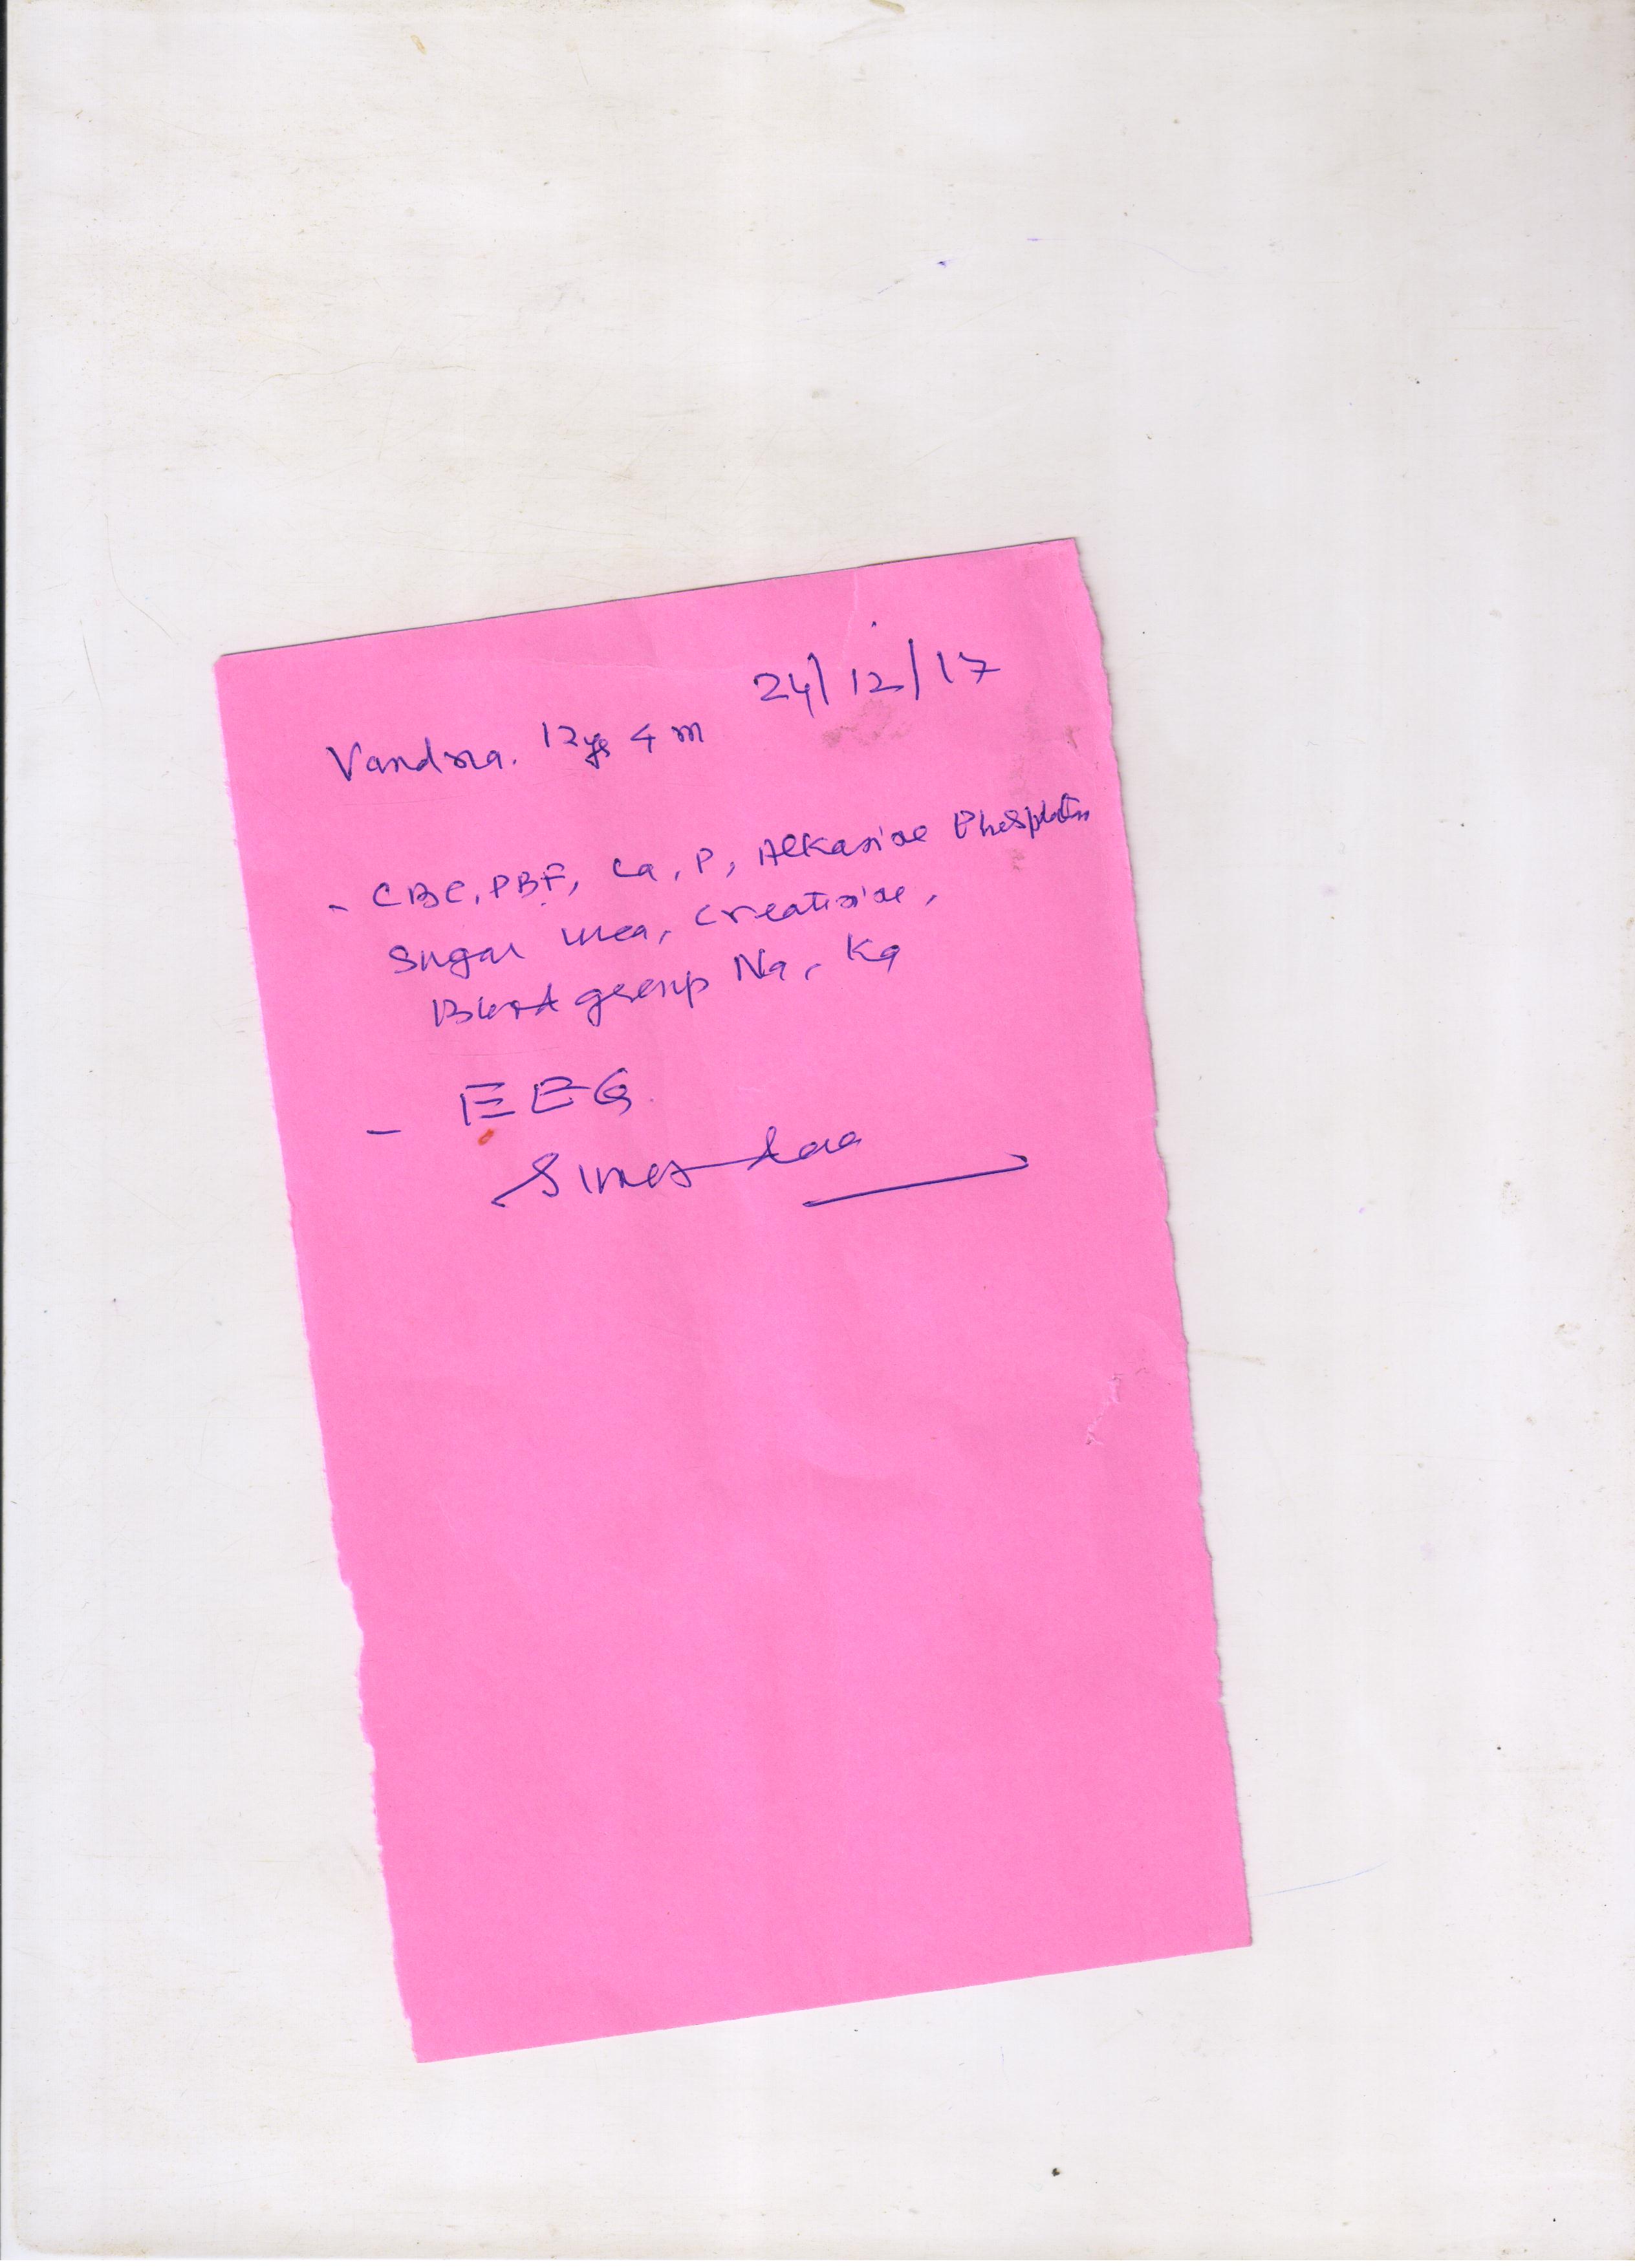 24/12/17
Vandna. 12ys 4 m
- CBC, PBF, Ca, P, Alkanine Phosphates
Sugar urea, Creatinine,
Blood group Na, Ka
- EEG